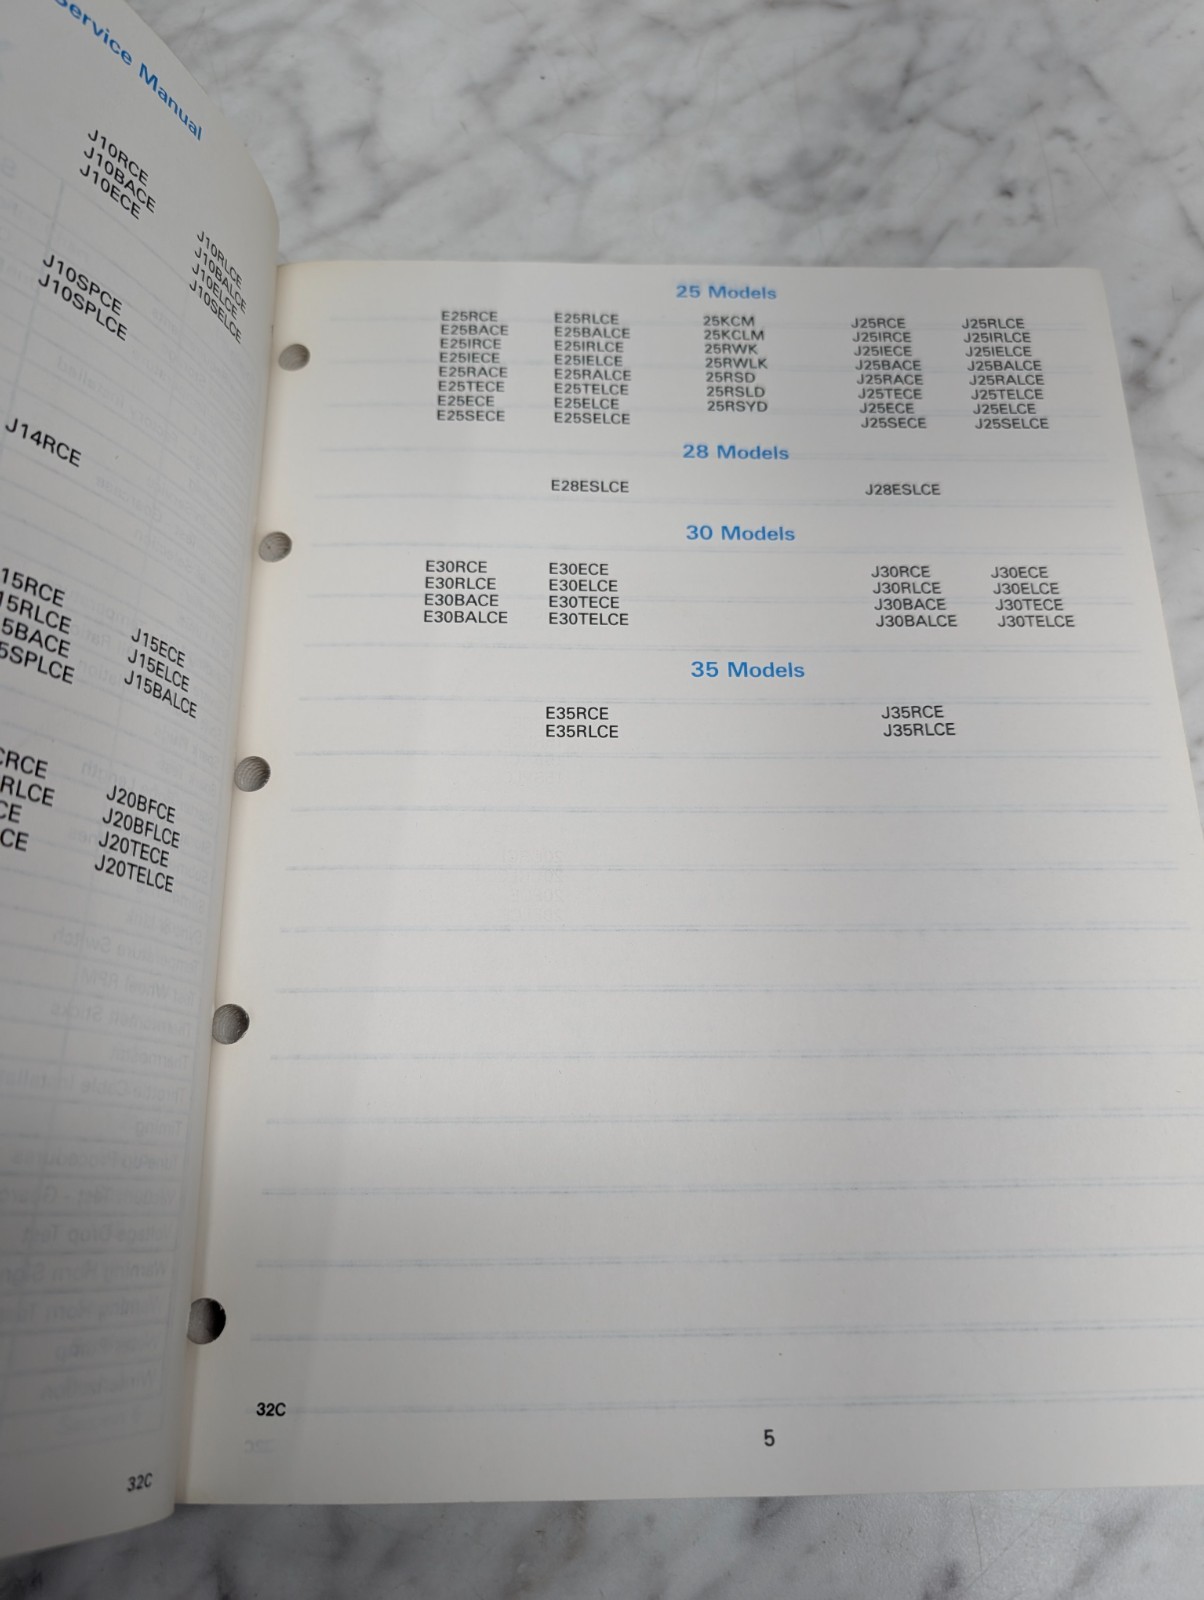 Service Manual
J10RCE
J10BACE
J10ECE
J10RLCE
J10BALCE
J10ELCE
J10SELCE
J10SPCE
J10SPLCE
J14RCE
15RCE
15RLCE
5BACE
5SPLCE
J15ECE
J15ELCE
J15BALCE
CRCE
RLCE
CE
CE
J20BFCE
J20BFLCE
J20TECE
J20TELCE
32C
25 Models
E25RCE E25RLCE 25KCM J25RCE J25RLCE
E25BACE E25BALCE 25KCLM J25IRCE J25IRLCE
E25IRCE E25IRLCE 25RWK J25IECE J25IELCE
E25IECE E25IELCE 25RWLK J25BACE J25BALCE
E25RACE E25RALCE 25RSD J25RACE J25RALCE
E25TECE E25TELCE 25RSLD J25TECE J25TELCE
E25ECE E25ELCE 25RSYD J25ECE J25ELCE
E25SECE E25SELCE J25SECE J25SELCE
28 Models
E28ESLCE J28ESLCE
30 Models
E30RCE E30ECE J30RCE J30ECE
E30RLCE E30ELCE J30RLCE J30ELCE
E30BACE E30TECE J30BACE J30TECE
E30BALCE E30TELCE J30BALCE J30TELCE
35 Models
E35RCE J35RCE
E35RLCE J35RLCE
32C
5